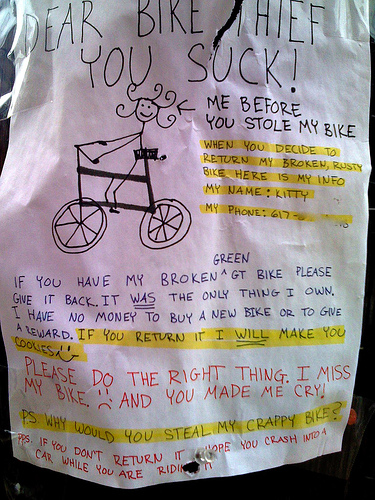 DEAR BIKE THIEF
YOU SUCK!
← ME BEFORE
YOU STOLE MY BIKE
WHEN YOU DECIDE TO
RETURN MY BROKEN, RUSTY
BIKE, HERE IS MY INFO
MY NAME: KITTY
MY PHONE: 617-
GREEN
IF YOU HAVE MY BROKEN ^ GT BIKE PLEASE
GIVE IT BACK. IT WAS THE ONLY THING I OWN.
I HAVE NO MONEY TO BUY A NEW BIKE OR TO GIVE
A REWARD. IF YOU RETURN IT I WILL MAKE YOU
COOKIES
PLEASE DO THE RIGHT THING. I MISS
MY BIKE. AND YOU MADE ME CRY!
PS WHY WOULD YOU STEAL MY CRAPPY BIKE?
PPS. IF YOU DON'T RETURN IT HOPE YOU CRASH INTO A
CAR WHILE YOU ARE RIDING IT